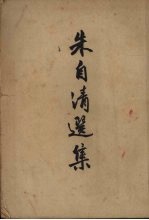 朱自清選集